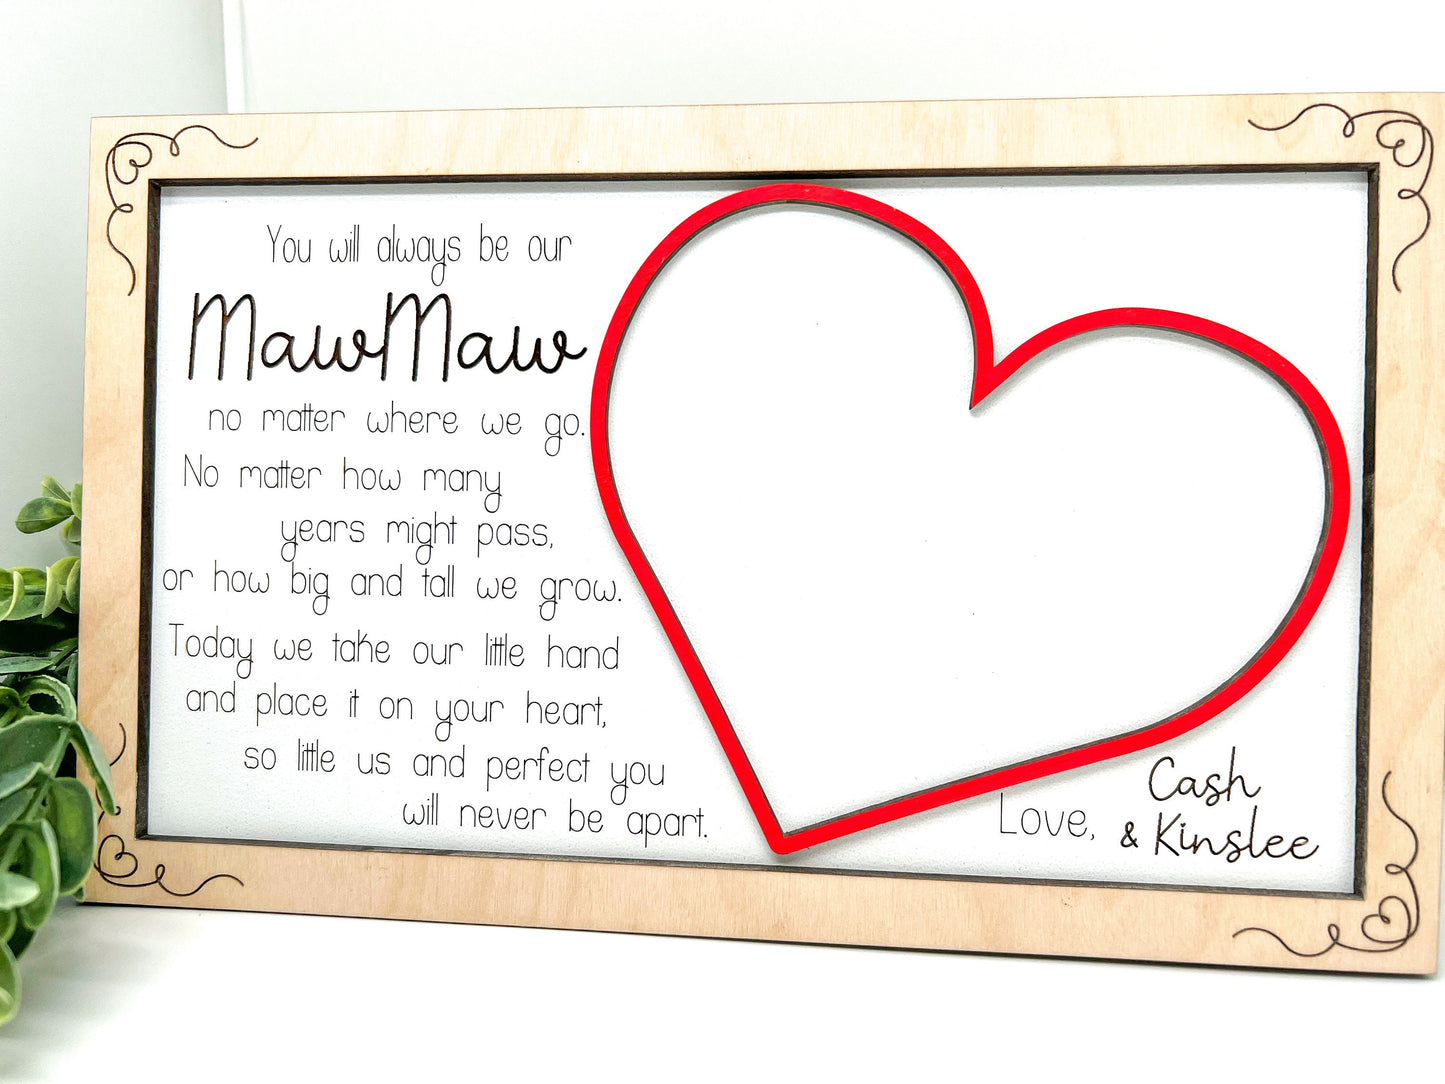 You will always be our
MawMaw
no matter where we go.
No matter how many
years might pass,
or how big and tall we grow.
Today we take our little hand
and place it on your heart,
so little us and perfect you
will never be apart.
Love,
Cash
& Kinslee